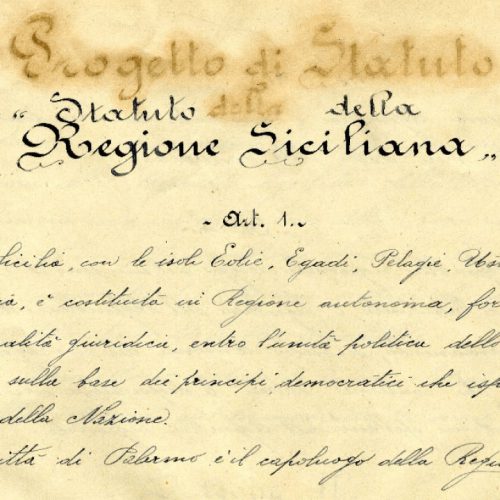 Progetto di Statuto
della
"Statuto della
Regione Siciliana"
- Art. 1. -
Sicilia, con le isole Eolie, Egadi, Pelagie, Us
è costituita in Regione autonoma, for
alità giuridica, entro l'unità politica dello
sulla base dei principi democratici che isp
della Nazione.
ittà di Palermo è il capoluogo della Regi